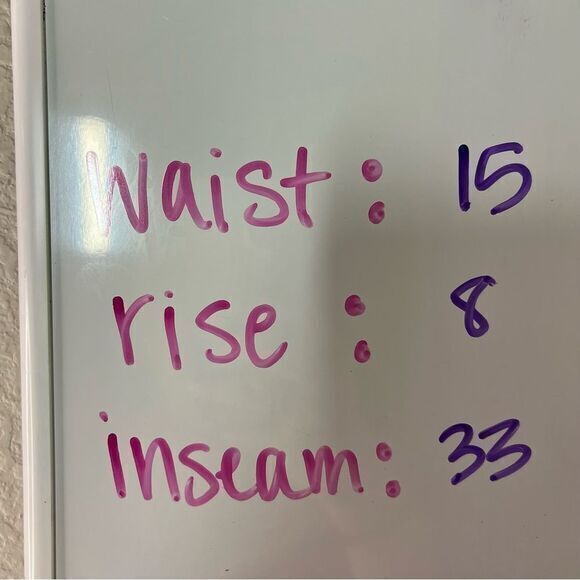 waist: 15
rise: 8
inseam: 33